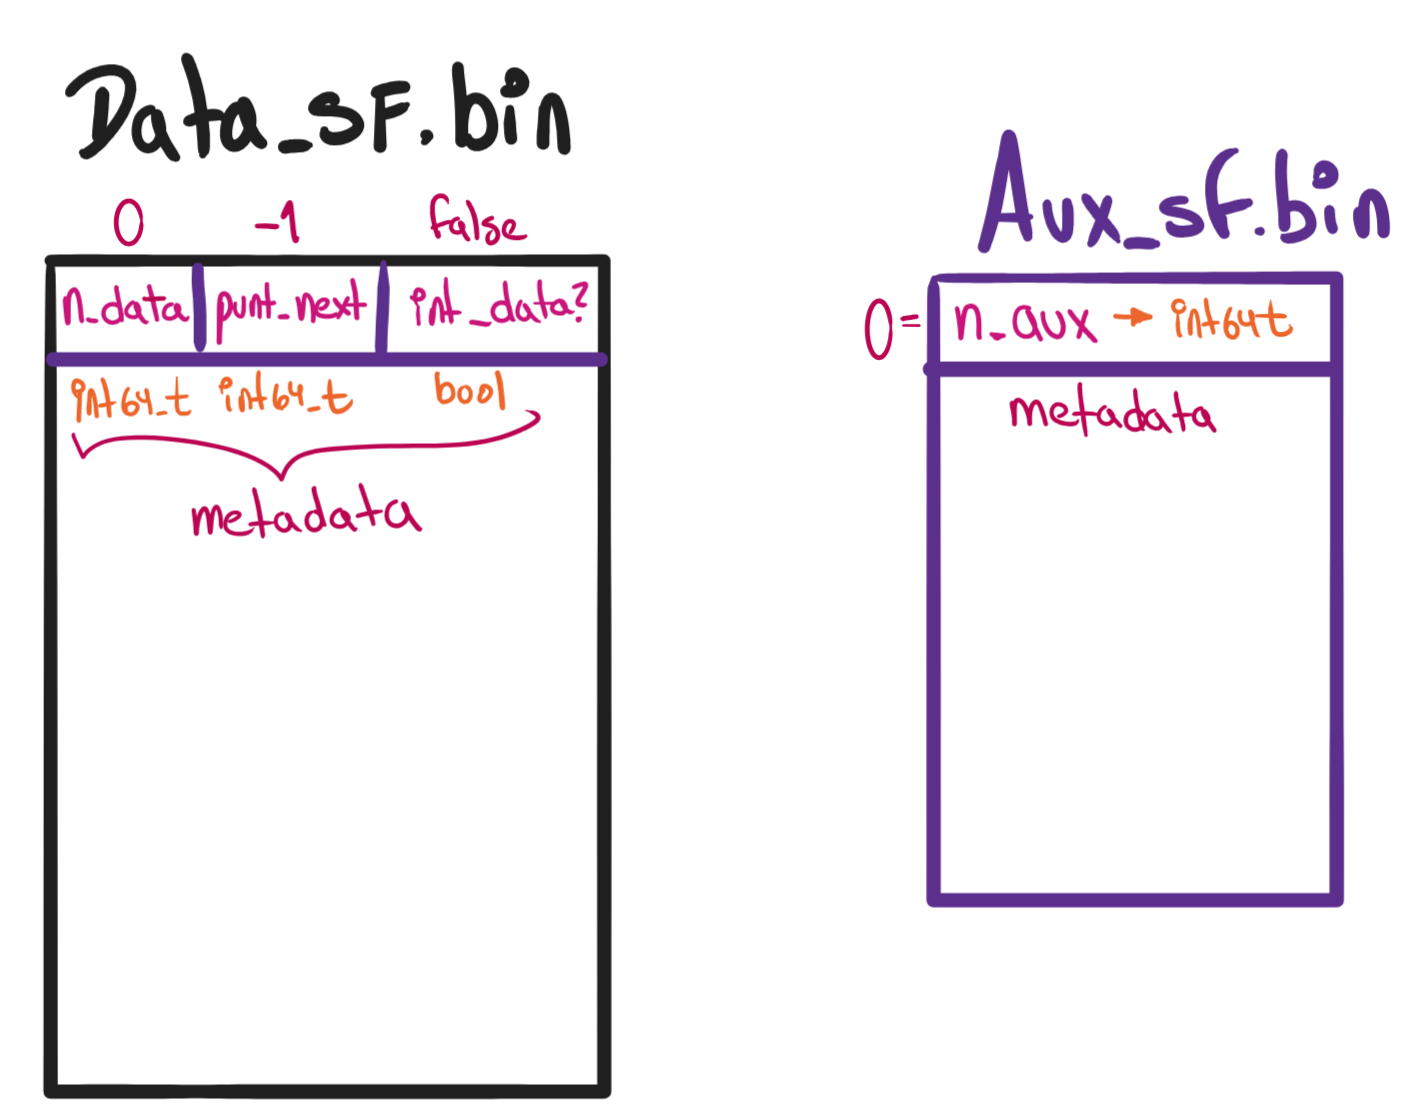 Data_sF.bin
0 -1 false
n_data punt_next int_data?
int64_t int64_t bool
metadata
Aux_sf.bin
0= n_aux → int64t
metadata